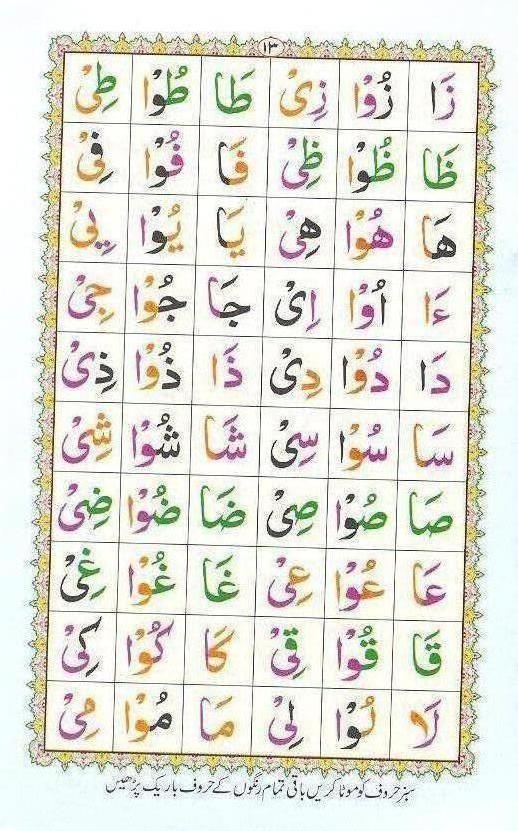 ١٣
زَا زُوْا زِیْ طَا طُوْا طِیْ
ظَا ظُوْا ظِیْ فَا فُوْا فِیْ
هَا هُوْا هِیْ یَا یُوْا یِیْ
ءَا اُوْا اِیْ جَا جُوْا جِیْ
دَا دُوْا دِیْ ذَا ذُوْا ذِیْ
سَا سُوْا سِیْ شَا شُوْا شِیْ
صَا صُوْا صِیْ ضَا ضُوْا ضِیْ
عَا عُوْا عِیْ غَا غُوْا غِیْ
قَا قُوْا قِیْ کَا کُوْا کِیْ
لَا لُوْا لِیْ مَا مُوْا مِیْ
سبز حروف کو موٹا کریں باقی تمام رنگوں کے حروف باریک پڑھیں